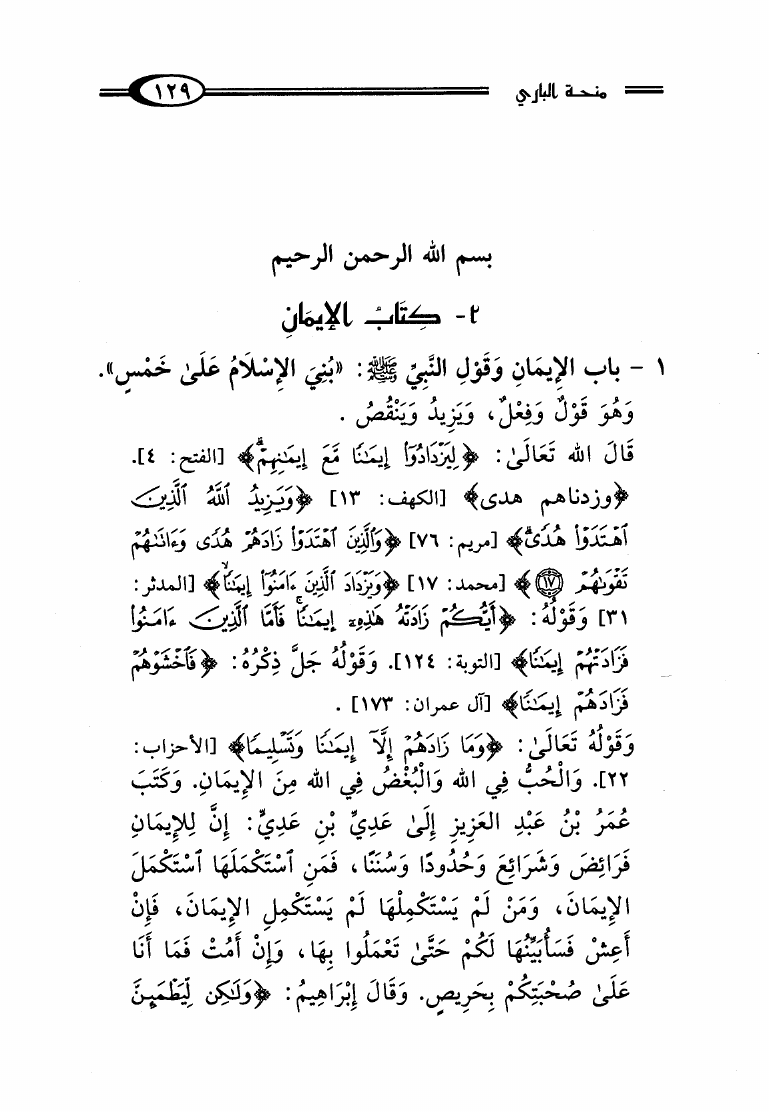 منحة الباري ١٢٩
بسم الله الرحمن الرحيم
٢- كِتَابُ الإِيمَانِ
١ - باب الإِيمَانِ وَقَوْلِ النَّبِيِّ ﷺ: «بُنِيَ الإِسْلَامُ عَلَىٰ خَمْسٍ».
وَهُوَ قَوْلٌ وَفِعْلٌ، وَيَزِيدُ وَيَنْقُصُ .
قَالَ الله تَعَالَىٰ: ﴿لِيَزْدَادُوٓا۟ إِيمَـٰنًا مَّعَ إِيمَـٰنِهِمْ﴾ [الفتح: ٤].
﴿وزدناهم هدى﴾ [الكهف: ١٣] ﴿وَيَزِيدُ ٱللَّهُ ٱلَّذِينَ
ٱهْتَدَوْا۟ هُدًى﴾ [مريم: ٧٦] ﴿وَٱلَّذِينَ ٱهْتَدَوْا۟ زَادَهُمْ هُدًى وَءَاتَىٰهُمْ
تَقْوَىٰهُمْ ۝١٧﴾ [محمد: ١٧] ﴿وَيَزْدَادَ ٱلَّذِينَ ءَامَنُوٓا۟ إِيمَـٰنًا﴾ [المدثر:
٣١] وَقَوْلُهُ: ﴿أَيُّكُمْ زَادَتْهُ هَـٰذِهِۦٓ إِيمَـٰنًا فَأَمَّا ٱلَّذِينَ ءَامَنُوا۟
فَزَادَتْهُمْ إِيمَـٰنًا﴾ [التوبة: ١٢٤]. وَقَوْلُهُ جَلَّ ذِكْرُهُ: ﴿فَٱخْشَوْهُمْ
فَزَادَهُمْ إِيمَـٰنًا﴾ [آل عمران: ١٧٣] .
وَقَوْلُهُ تَعَالَىٰ: ﴿وَمَا زَادَهُمْ إِلَّآ إِيمَـٰنًا وَتَسْلِيمًا﴾ [الأحزاب:
٢٢]. وَالْحُبُّ فِي الله وَالْبُغْضُ فِي الله مِنَ الإِيمَانِ. وَكَتَبَ
عُمَرُ بْنُ عَبْدِ العَزِيزِ إِلَىٰ عَدِيِّ بْنِ عَدِيٍّ: إِنَّ لِلإِيمَانِ
فَرَائِضَ وَشَرَائِعَ وَحُدُودًا وَسُنَنًا، فَمَنِ ٱسْتَكْمَلَهَا ٱسْتَكْمَلَ
الإِيمَانَ، وَمَنْ لَمْ يَسْتَكْمِلْهَا لَمْ يَسْتَكْمِلِ الإِيمَانَ، فَإِنْ
أَعِشْ فَسَأُبَيِّنُهَا لَكُمْ حَتَّىٰ تَعْمَلُوا بِهَا، وَإِنْ أَمُتْ فَمَا أَنَا
عَلَىٰ صُحْبَتِكُمْ بِحَرِيصٍ. وَقَالَ إِبْرَاهِيمُ: ﴿وَلَـٰكِن لِّيَطْمَئِنَّ